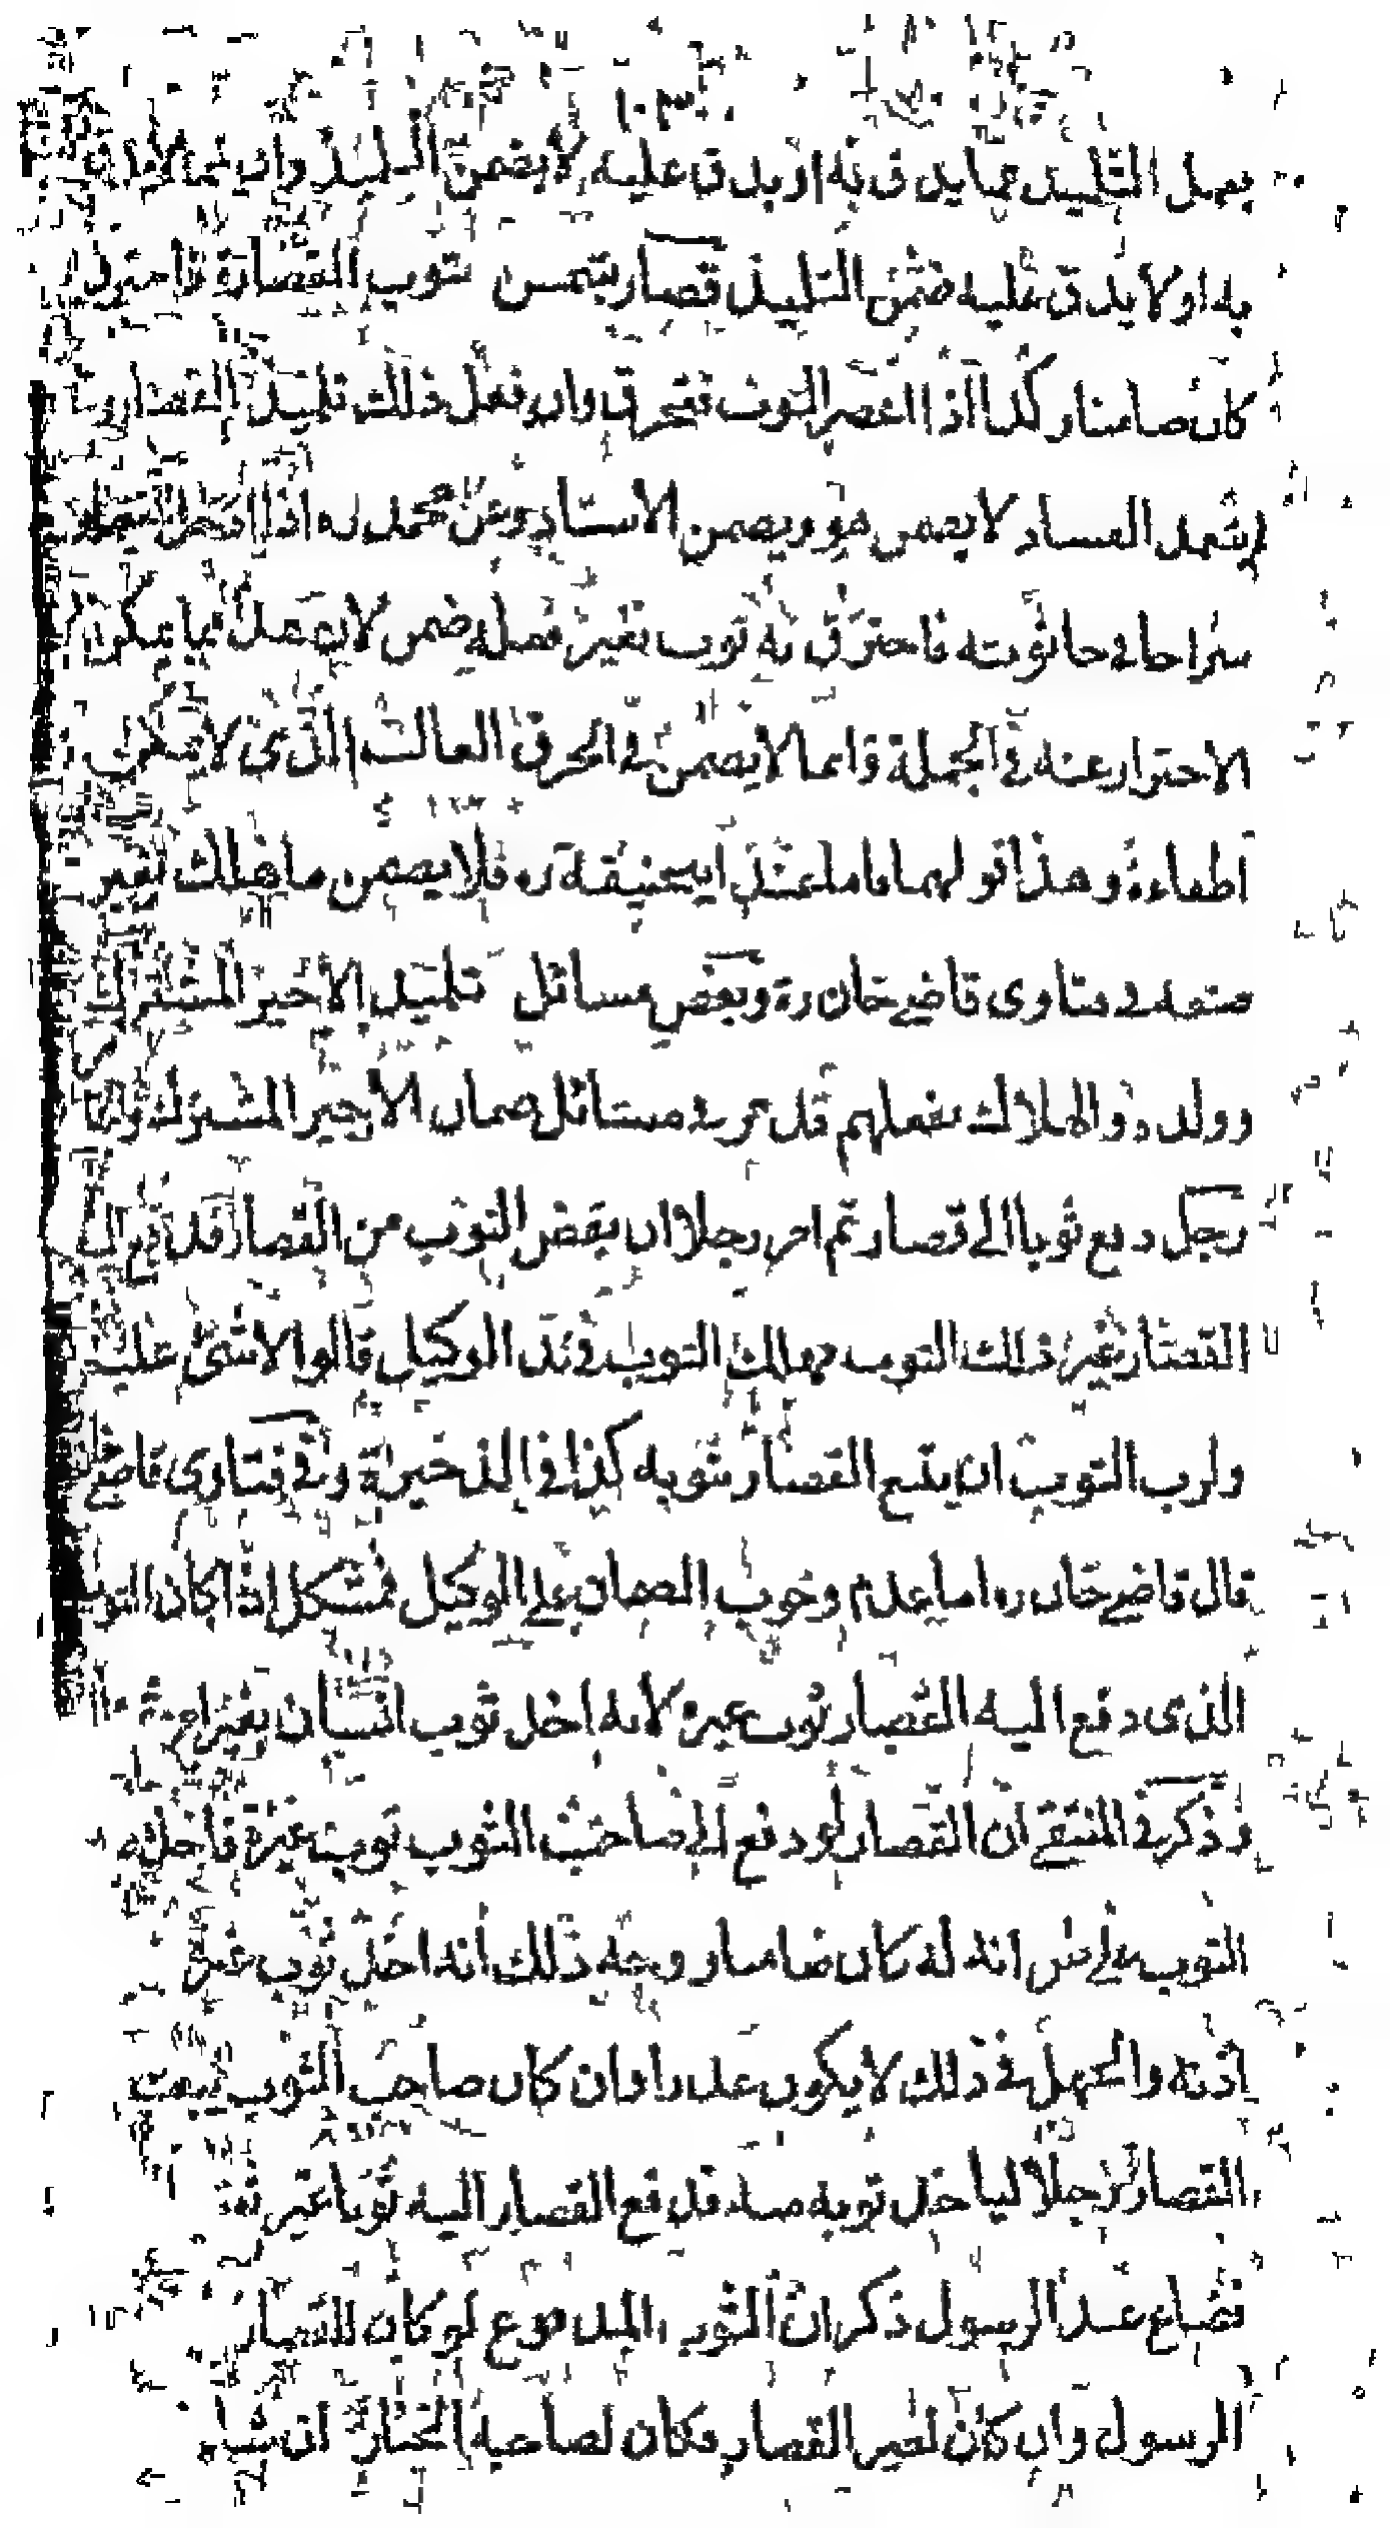 ١٠٣
بعمل التلميذ مما يدق به او يدق عليه لا يضمن التلميذ وان مما لا يدق
به او لا يدق عليه ضمن التلميذ قصار يتمس ثوب القصارة ڡا
كان ضامنا وكذا اذا اعصر الثوب فتخرق وان فعل ذلك تلميذ القصار وما
تعمد الفساد لا يضمن هو ويضمن الاستاد وعن محمد ره اذا ادخل القصار
سراجا في حانوته فاحترق به ثوب بغير فعله ضمن لانه عمل فيما يمكن
الاحتراز عنه في الجملة وانما لا يضمن في الحرق الغالب الذي لا يمكن
اطفاءه وهذا قولهما فاما عند ابي حنيفة ره فلا يضمن ما هلك بغير
صنعه في فتاوى قاضي خان ره وبعض مسائل تلميذ الاجير المشترك
وولده والهلاك بفعلهم قد مر في مسائل ضمان الاجير المشترك
رجل دفع ثوبا الى قصار ثم امر رجلا ان يقبض الثوب من القصار فدفع اليه
القصار غير ذلك الثوب فهلك الثوب في يد الوكيل قالوا لا شئ عليه
ولرب الثوب ان يتبع القصار بثوبه كذا في الذخيرة وفي فتاوى قاضي
قال قاضي خان ره اما عدم وجوب الضمان على الوكيل فمشكل اذا كان الثوب
الذي دفع اليه القصار ثوب غيره لانه اخذ ثوب انسان بغير
وذكر في المنتقى ان القصار لو دفع الى صاحب الثوب ثوب غيره فاخذه
الثوب على ظن انه له كان ضامنا ووجه ذلك انه اخذ ثوب غير
اذنه والجهل في ذلك لا يكون عذرا وان كان صاحب الثوب يبعث
القصار رجلا لياخذ ثوبه منه فدفع القصار اليه ثوبا غير ثوبه
فضاع عند الرسول ذكر ان الثوب المدفوع لو كان للقصار
الرسول وان كان لغير القصار فكان لصاحبه الخيار ان شاء